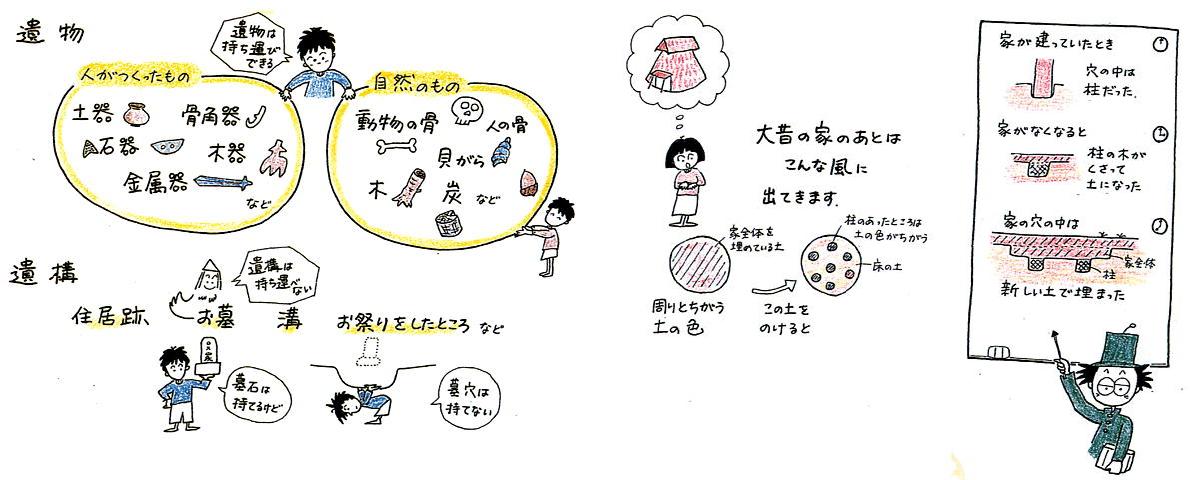 遺物
遺物は
持ち運び
できる
人がつくったもの
土器
骨角器
石器
木器
金属器
など
自然のもの
動物の骨
人の骨
貝がら
木
炭
など
遺構
遺構は
持ち運べ
ない
住居跡
お墓
溝
お祭りをしたところ など
墓石は
持てるけど
墓穴は
持てない
大昔の家のあとは
こんな風に
出てきます。
家全体を
埋めている土
周りとちがう
土の色
この土を
のけると
柱のあったところは
土の色がちがう
床の土
家が建っていたとき
穴の中は
柱だった。
家がなくなると
柱の木が
くさって
土になった
家の穴の中は
家全体
柱
新しい土で埋まった